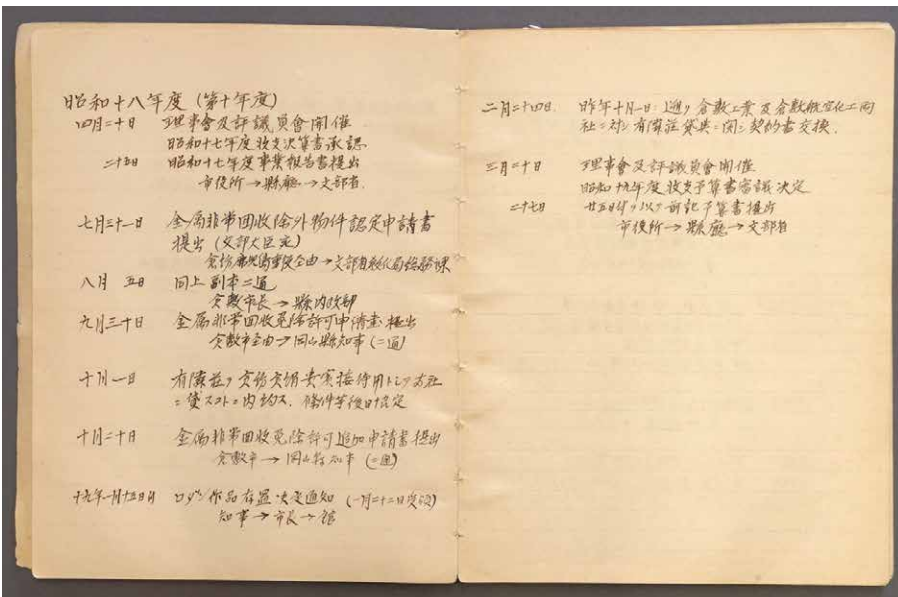 昭和十八年度(第十年度)
四月二十日 理事會及評議員會開催
昭和十七年度收支決算書承認
二十五日 昭和十七年度事業報告書提出
市役所→縣廳→文部省
七月三十一日 金属非常回收除外物件認定申請書
提出(文部大臣宛)
経由→文部省教化局総務課
八月 五日 同上副本二通
倉敷市長→縣内政部
九月三十日 金属非常回收免除許可申請書提出
倉敷市経由→岡山縣知事(二通)
十月一日 有隣荘ヲ貴賓接待用トシテ両社
ニ貸スコトニ内約ス、條件等後日協定
十月二十日 金属非常回收免除許可追加申請書提出
倉敷市→岡山縣知事(二通)
十九年一月十五日 ロダン作品存置決定通知(一月二十二日受領)
知事→市長→館
二月二十四日 昨年十月一日ニ遡リ倉敷工業及倉敷航空化工両
社ニ対シ有隣荘貸与ニ関シ契約書交換、
三月二十日 理事會及評議員會開催
昭和十九年度收支予算書審議決定
二十七日 廿五日付ヲ以テ前記予算書提出
市役所→縣廳→文部省